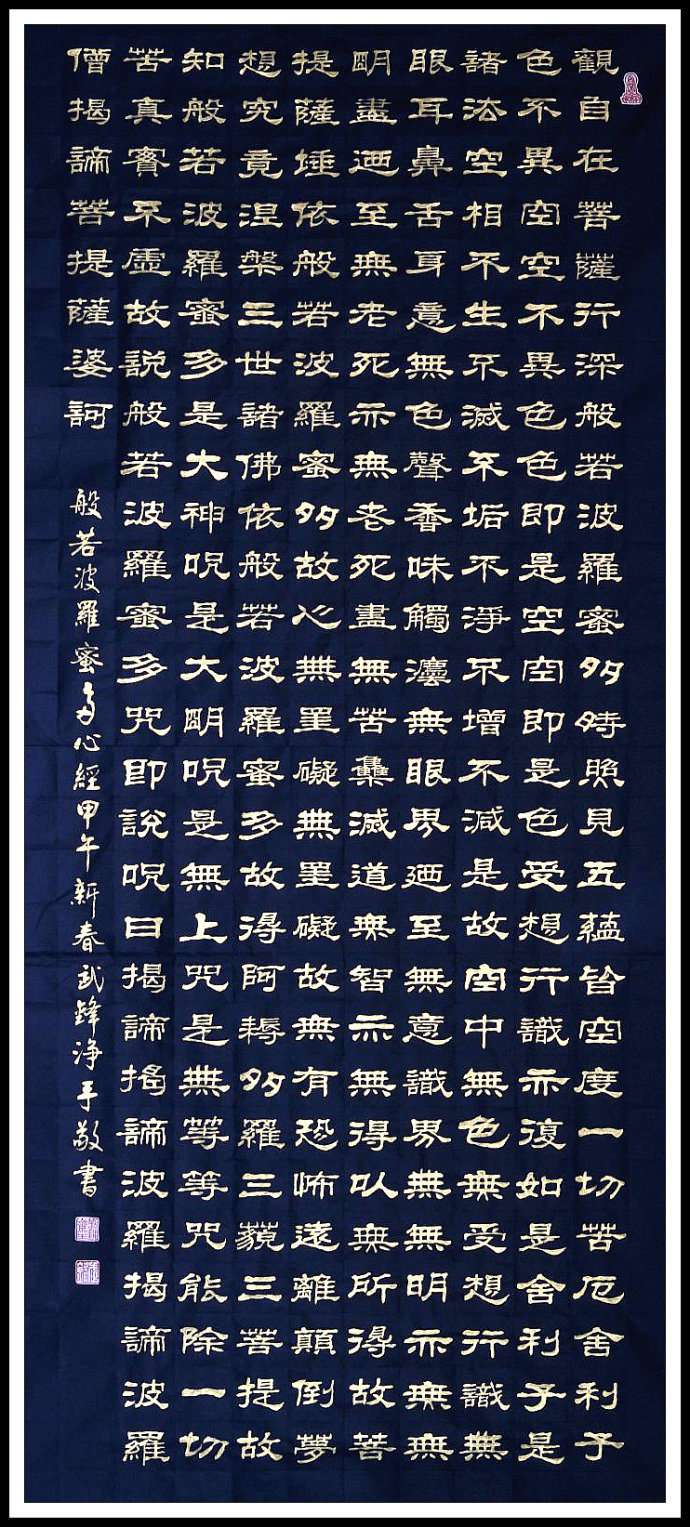 觀自在菩薩行深般若波羅蜜多時照見五蘊皆空度一切苦厄舍利子
色不異空空不異色色即是空空即是色受想行識亦復如是舍利子是
諸法空相不生不滅不垢不淨不增不減是故空中無色無受想行識無
眼耳鼻舌身意無色聲香味觸灋無眼界廼至無意識界無無明亦無無
朙盡迺至無老死亦無老死盡無苦集滅道無智亦無得以無所得故菩
提薩埵依般若波羅蜜多故心無罣礙無罣礙故無有恐怖遠離顛倒夢
想究竟涅槃三世諸佛依般若波羅蜜多故得阿耨多羅三藐三菩提故
知般若波羅蜜多是大神呪是大朙呪是無上咒是無等等咒能除一切
苦真實不虛故說般若波羅蜜多咒即說呪曰揭諦揭諦波羅揭諦波羅
僧揭諦菩提薩婆訶
般若波羅蜜多心經甲午新春武鋒淨手敬書